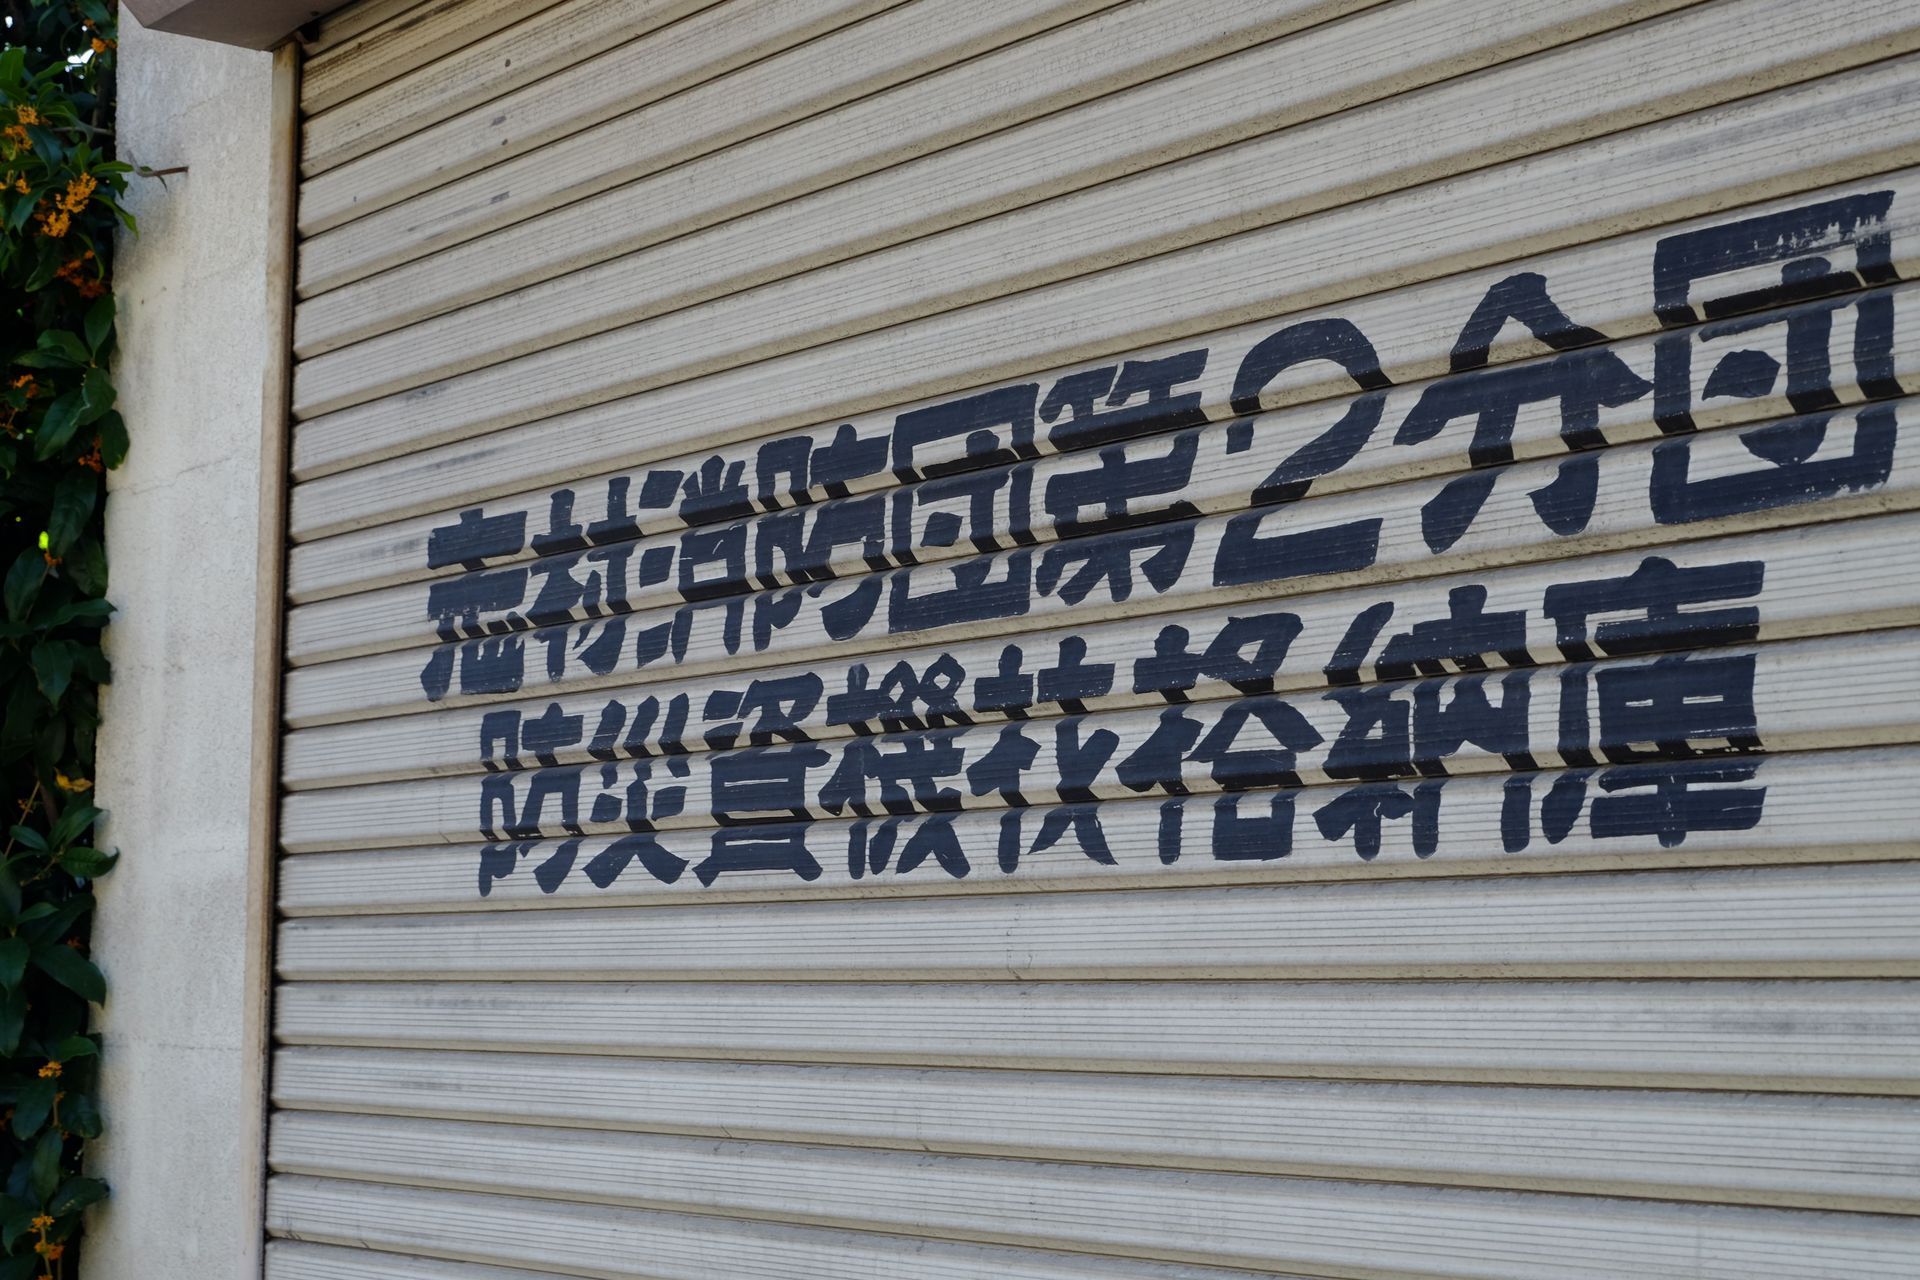 志村消防団第2分団
防災資機材格納庫